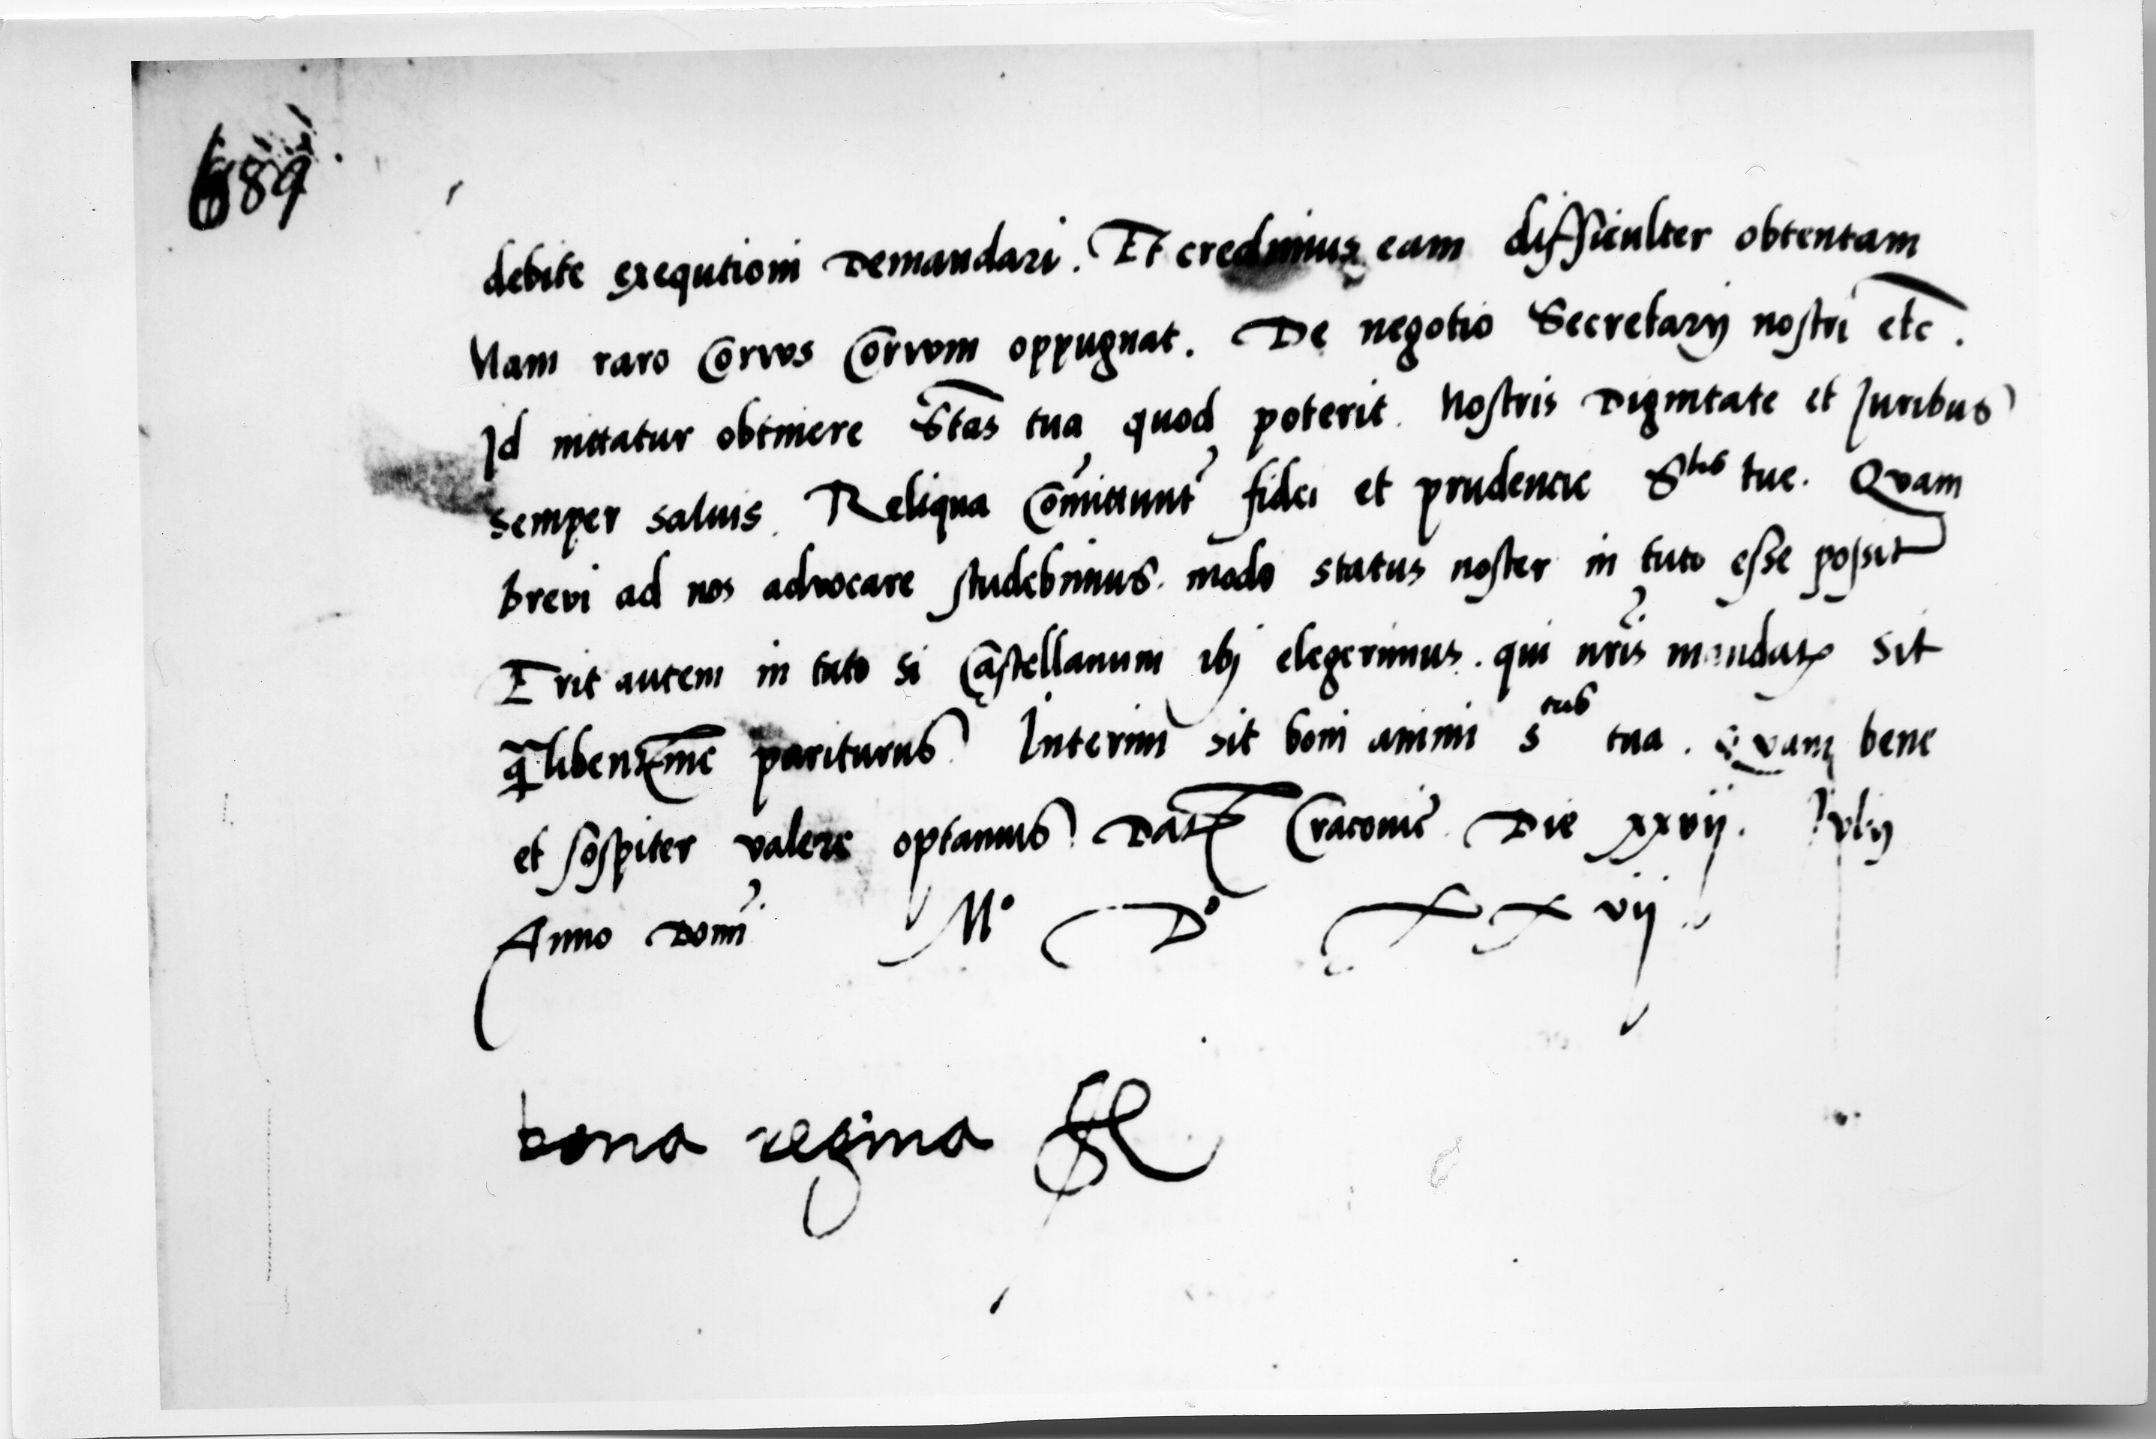 689
debite exequtioni demandari. Et credimus eam difficulter obtentam
Nam raro Corvus Corvom oppugnat. De negotio Secretarij nostri etc.
Id nittatur obtinere Stas tua quod poterit. Nostris Dignitate et Juribus
semper salvis. Reliqua Comittunt fidei et prudencie Stis tue. Quam
brevi ad nos advocare studebimus. modo status noster in tuto esse possit
Erit autem in tuto si Castellanum ibj elegerimus. qui nris mandat sit
libentme pariturus Interim sit boni animi S tua. Quam bene
et sospiter valere optamus Dat Cracovie Die xxvij. Julij
Anno Domi Mo Do XXvij
bona regina